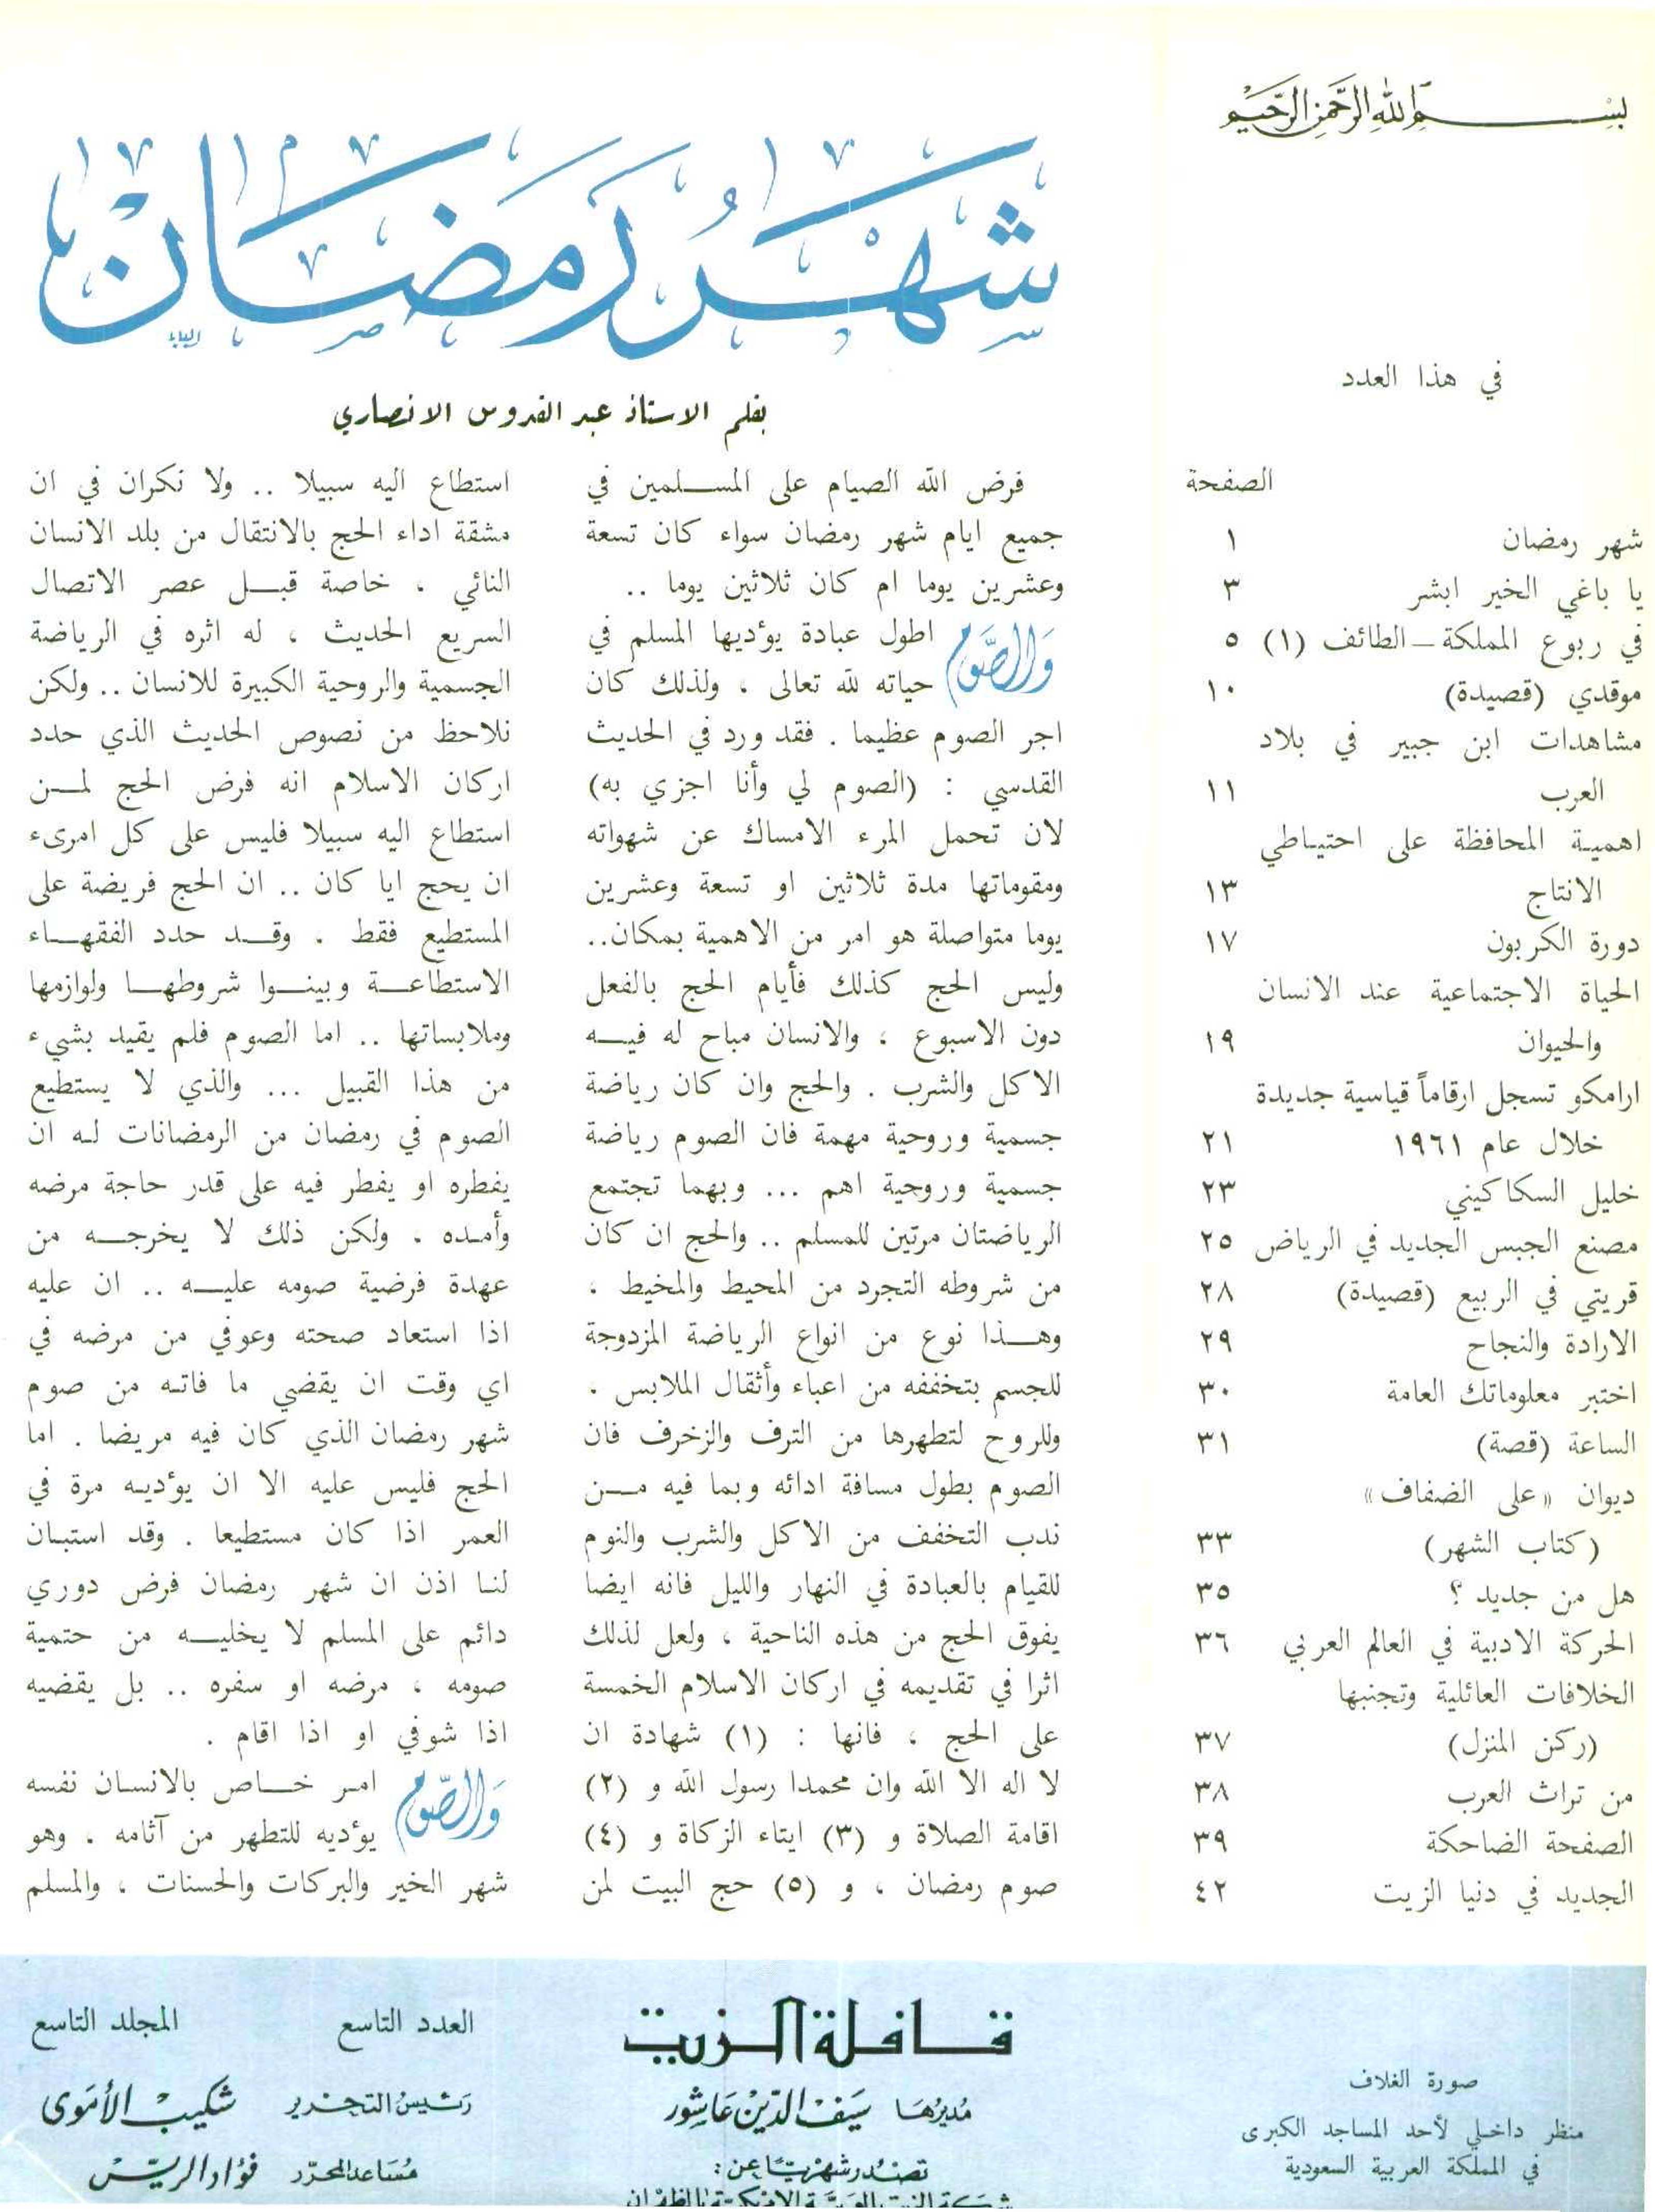 بسم الله الرحمن الرحيم
في هذا العدد
الصفحة
شهر رمضان ١
يا باغي الخير ابشر ٣
في ربوع المملكة – الطائف (١) ٥
موقدي (قصيدة) ١٠
مشاهدات ابن جبير في بلاد
العرب ١١
اهمية المحافظة على احتياطي
الانتاج ١٣
دورة الكربون ١٧
الحياة الاجتماعية عند الانسان
والحيوان ١٩
ارامكو تسجل ارقاماً قياسية جديدة
خلال عام ١٩٦١ ٢١
خليل السكاكيني ٢٣
مصنع الجبس الجديد في الرياض ٢٥
قريتي في الربيع (قصيدة) ٢٨
الارادة والنجاح ٢٩
اختبر معلوماتك العامة ٣٠
الساعة (قصة) ٣١
ديوان «على الضفاف»
(كتاب الشهر) ٣٣
هل من جديد ؟ ٣٥
الحركة الادبية في العالم العربي ٣٦
الخلافات العائلية وتجنبها
(ركن المنزل) ٣٧
من تراث العرب ٣٨
الصفحة الضاحكة ٣٩
الجديد في دنيا الزيت ٤٢
شهر رمضان
بقلم الاستاذ عبد القدوس الانصاري
فرض الله الصيام على المسلمين في
جميع ايام شهر رمضان سواء كان تسعة
وعشرين يوما ام كان ثلاثين يوما ..
والصوم اطول عبادة يؤديها المسلم في
حياته لله تعالى ، ولذلك كان
اجر الصوم عظيما . فقد ورد في الحديث
القدسي : (الصوم لي وأنا اجزي به)
لان تحمل المرء الامساك عن شهواته
ومقوماتها مدة ثلاثين او تسعة وعشرين
يوما متواصلة هو امر من الاهمية بمكان..
وليس الحج كذلك فأيام الحج بالفعل
دون الاسبوع ، والانسان مباح له فيه
الاكل والشرب . والحج وان كان رياضة
جسمية وروحية مهمة فان الصوم رياضة
جسمية وروحية اهم ... وبهما تجتمع
الرياضتان مرتين للمسلم .. والحج ان كان
من شروطه التجرد من المحيط والمخيط ،
وهذا نوع من انواع الرياضة المزدوجة
للجسم بتخففه من اعباء وأثقال الملابس .
وللروح لتطهرها من الترف والزخرف فان
الصوم بطول مسافة ادائه وبما فيه من
ندب التخفف من الاكل والشرب والنوم
للقيام بالعبادة في النهار والليل فانه ايضا
يفوق الحج من هذه الناحية ، ولعل لذلك
اثرا في تقديمه في اركان الاسلام الخمسة
على الحج ، فانها : (١) شهادة ان
لا اله الا الله وان محمدا رسول الله و (٢)
اقامة الصلاة و (٣) ايتاء الزكاة و (٤)
صوم رمضان ، و (٥) حج البيت لمن
استطاع اليه سبيلا .. ولا نكران في ان
مشقة اداء الحج بالانتقال من بلد الانسان
النائي ، خاصة قبل عصر الاتصال
السريع الحديث ، له اثره في الرياضة
الجسمية والروحية الكبيرة للانسان .. ولكن
نلاحظ من نصوص الحديث الذي حدد
اركان الاسلام انه فرض الحج لمن
استطاع اليه سبيلا فليس على كل امرىء
ان يحج ايا كان .. ان الحج فريضة على
المستطيع فقط . وقد حدد الفقهاء
الاستطاعة وبينوا شروطها ولوازمها
وملابساتها .. اما الصوم فلم يقيد بشيء
من هذا القبيل ... والذي لا يستطيع
الصوم في رمضان من الرمضانات له ان
يفطره او يفطر فيه على قدر حاجة مرضه
وأمده . ولكن ذلك لا يخرجه من
عهدة فرضية صومه عليه .. ان عليه
اذا استعاد صحته وعوفي من مرضه في
اي وقت ان يقضي ما فاته من صوم
شهر رمضان الذي كان فيه مريضا . اما
الحج فليس عليه الا ان يؤديه مرة في
العمر اذا كان مستطيعا . وقد استبان
لنا اذن ان شهر رمضان فرض دوري
دائم على المسلم لا يخليه من حتمية
صومه ، مرضه او سفره .. بل يقضيه
اذا شوفي او اذا اقام .
والصوم امر خاص بالانسان نفسه
يؤديه للتطهر من آثامه . وهو
شهر الخير والبركات والحسنات ، والمسلم
صورة الغلاف
منظر داخلي لأحد المساجد الكبرى
في المملكة العربية السعودية
قافلة الزيت
مديرها سيف الدين عاشور
تصدر شهريا عن:
شركة الزيت العربية الامريكية بالظهران
العدد التاسع المجلد التاسع
رئيس التحرير شكيب الأموى
مساعد المحرر فؤاد الريس